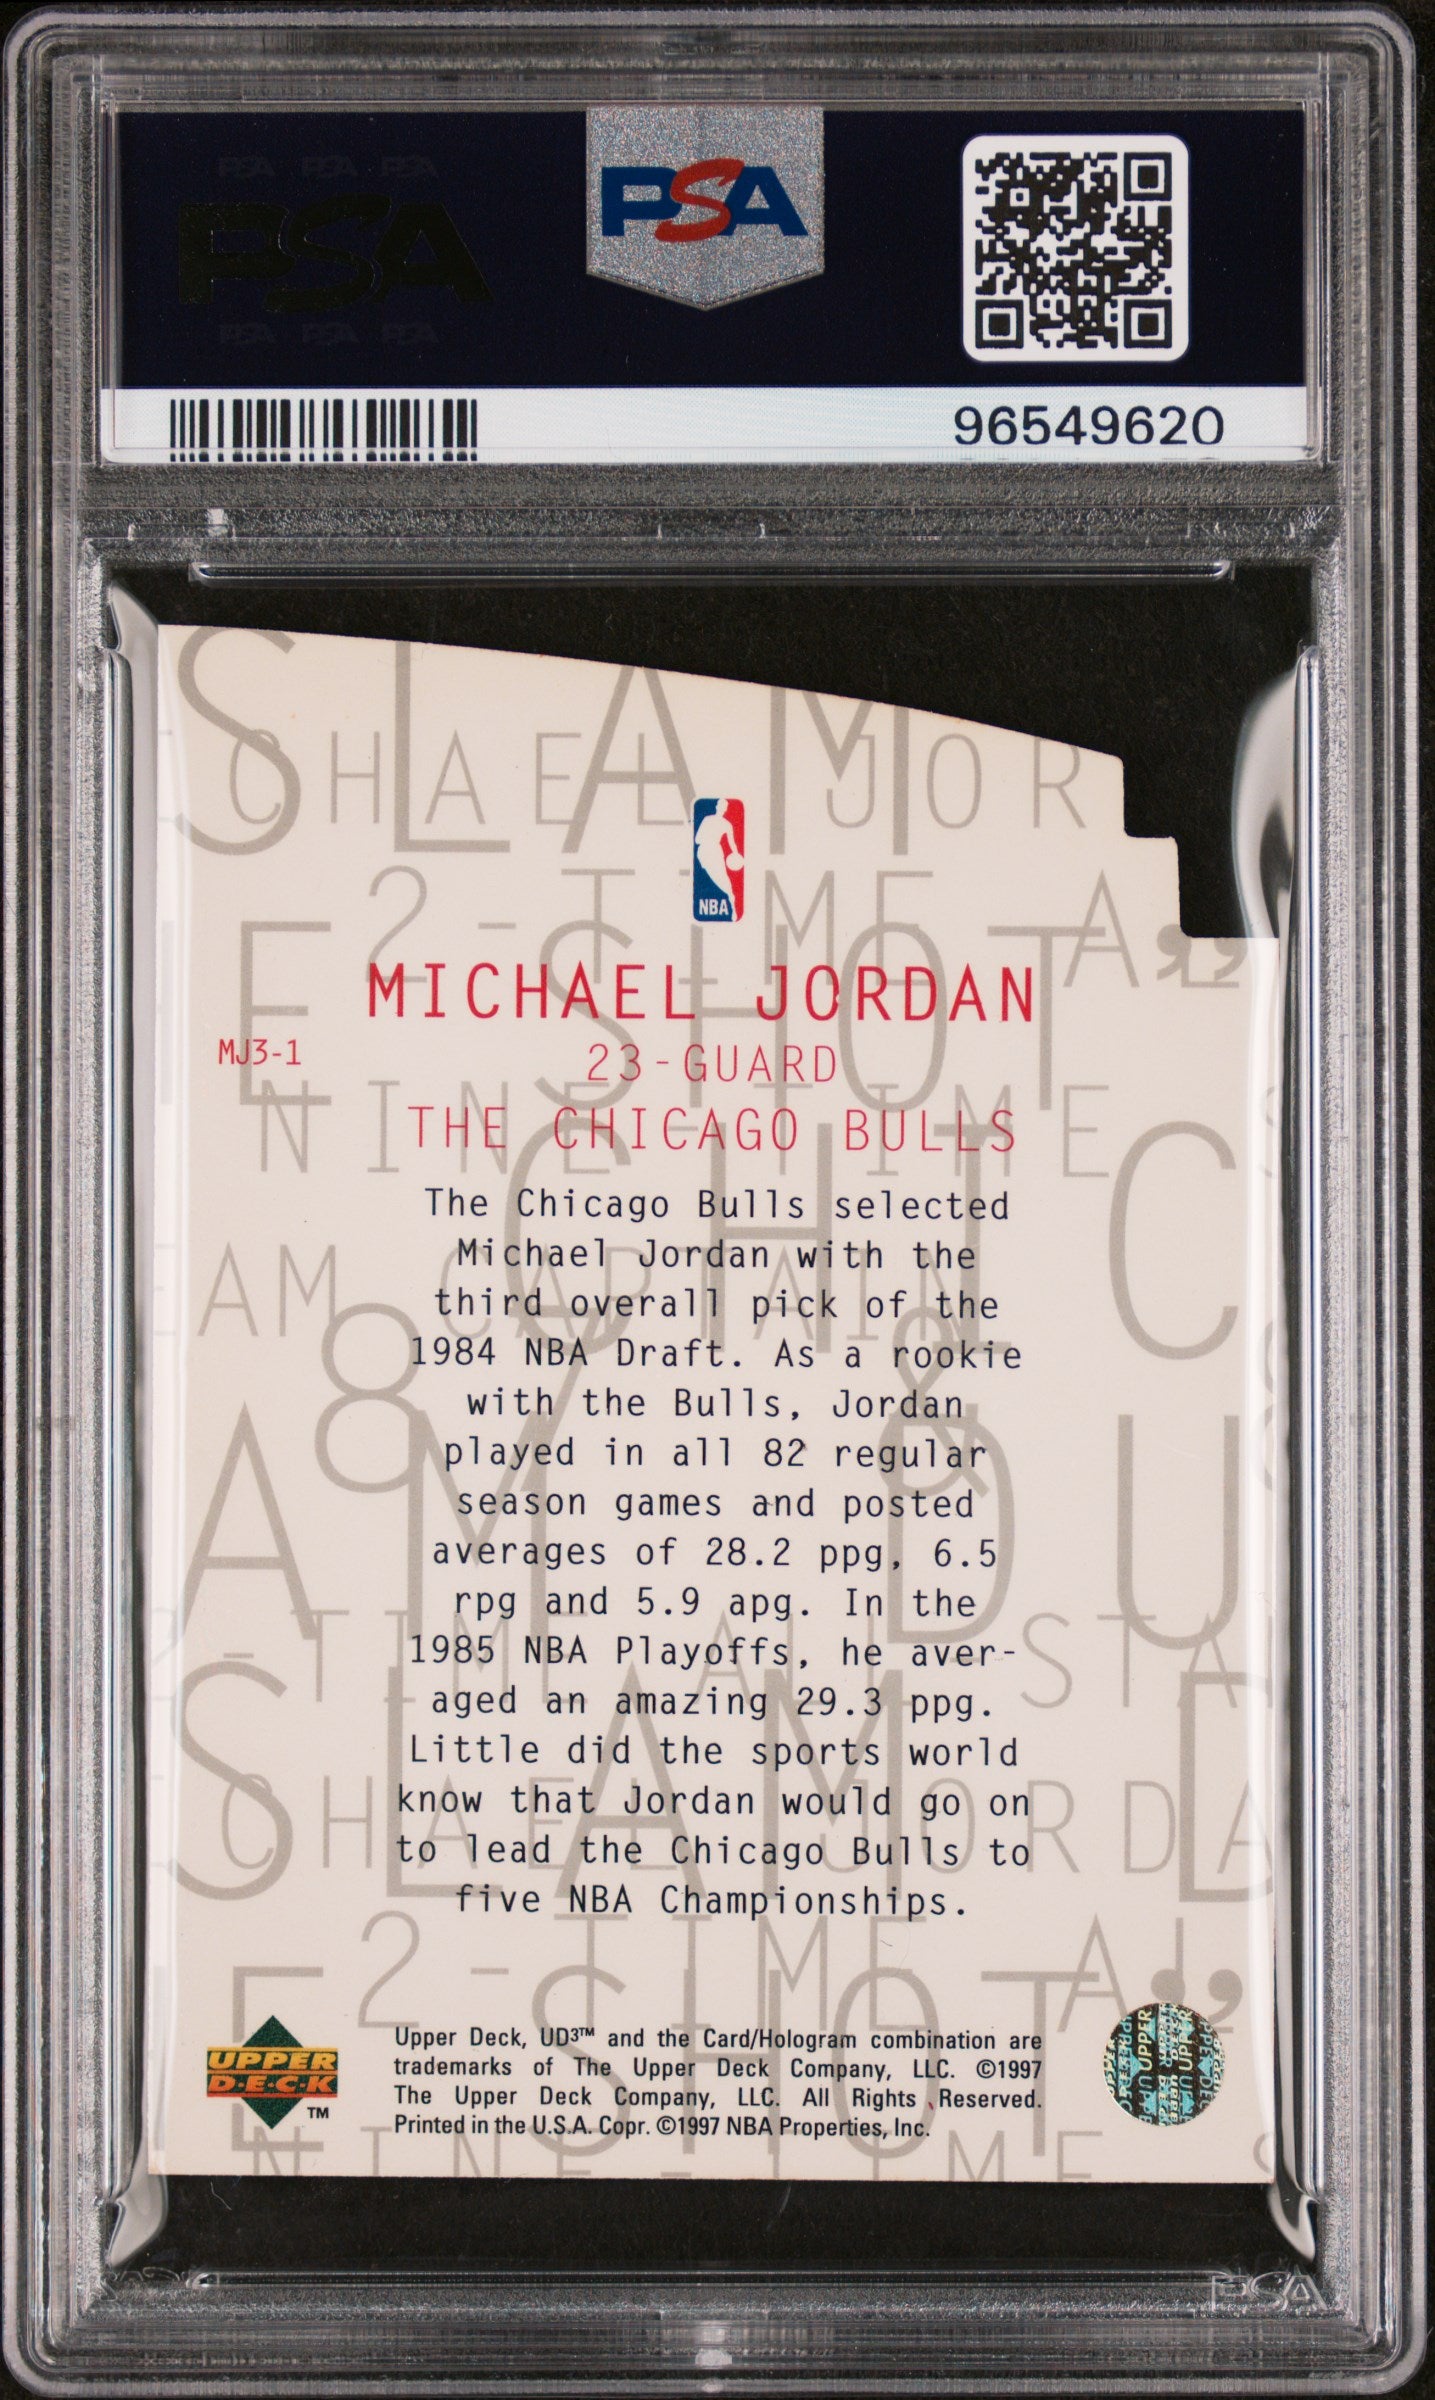 PSA PSA PSA
PSA
PSA PSA PSA
PSA
96549620
NBA
MICHAEL JORDAN
MJ3-1
23-GUARD
THE CHICAGO BULLS
The Chicago Bulls selected
Michael Jordan with the
third overall pick of the
1984 NBA Draft. As a rookie
with the Bulls, Jordan
played in all 82 regular
season games and posted
averages of 28.2 ppg, 6.5
rpg and 5.9 apg. In the
1985 NBA Playoffs, he aver-
aged an amazing 29.3 ppg.
Little did the sports world
know that Jordan would go on
to lead the Chicago Bulls to
five NBA Championships.
UPPER
D·E·C·K
TM
Upper Deck, UD3™ and the Card/Hologram combination are
trademarks of The Upper Deck Company, LLC. ©1997
The Upper Deck Company, LLC. All Rights Reserved.
Printed in the U.S.A. Copr. ©1997 NBA Properties, Inc.
PSA